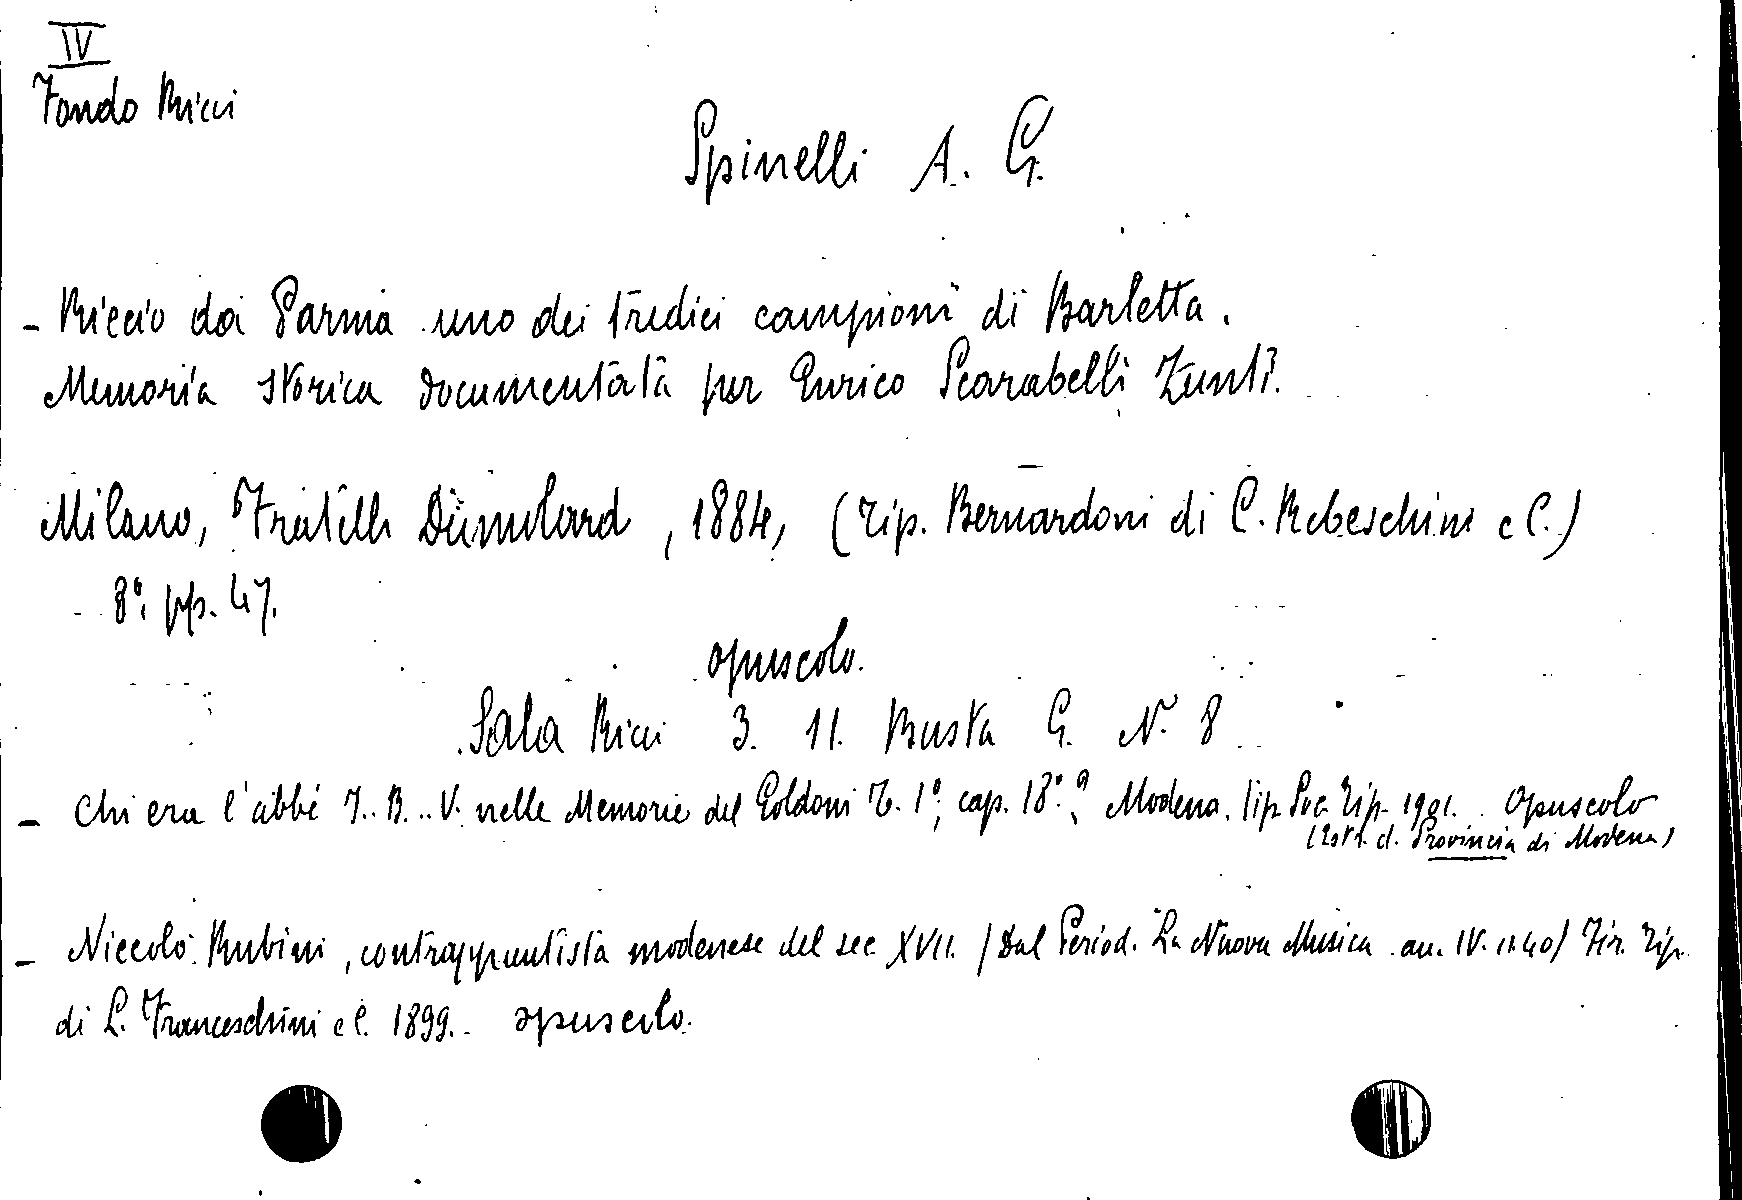 IV
Fondo Ricci
Spinelli A. G.
- Riccio da Parma uno dei tredici campioni di Barletta.
Memoria storica documentata per Enrico Scarabelli Zunti.
Milano, Fratelli Dumolard, 1884, (Tip. Bernardoni di C. Rebeschini e C.)
8°. pp. 47.
opuscolo.
Sala Ricci 3. 11. Busta G. N. 8
- Chi era l'abbé J..B...V. nelle Memorie del Goldoni T. 1°, cap. 18°.? Modena. Tip. Soc. Tip. 1901. Opuscolo
(Estr. d. Provincia di Modena)
- Niccolò Rubini, contrappuntista modenese del sec XVII. (Dal Period. La Nuova Musica an. IV. n 40) Fir. Tip.
di L. Franceschini e C. 1899. opuscolo.